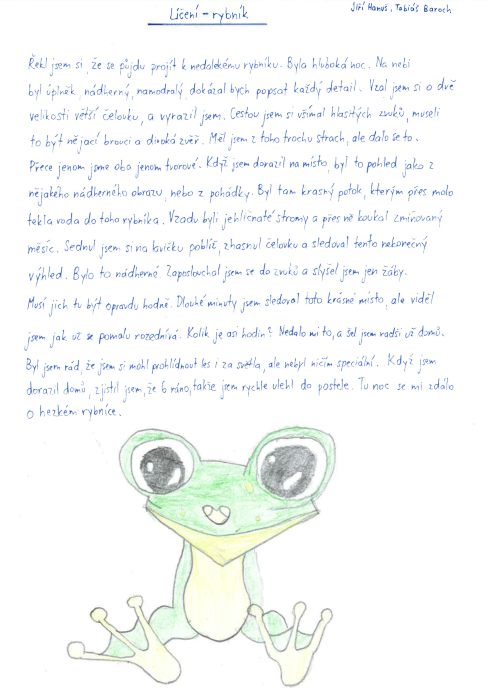 Líčení - rybník
Jiří Hanuš, Tobiáš Baroch
Řekl jsem si, že se půjdu projít k nedalekému rybníku. Byla hluboká noc. Na nebi
byl úplněk, nádherný, namodralý dokázal bych popsat každý detail. Vzal jsem si o dvě
velikosti větší čelovku, a vyrazil jsem. Cestou jsem si všímal hlasitých zvuků, museli
to být nějací brouci a divoká zvěř. Měl jsem z toho trochu strach, ale dalo se to.
Přece jenom jsme oba jenom tvorové. Když jsem dorazil na místo, byl to pohled jako z
nějakého nádherného obrazu, nebo z pohádky. Byl tam krasný potok, kterým přes molo
tekla voda do toho rybníka. Vzadu byli jehličnaté stromy a přes ně koukal zmiňovaný
měsíc. Sednul jsem si na lavičku poblíž, zhasnul čelovku a sledoval tento nekonečný
výhled. Bylo to nádherné. Zaposlouchal jsem se do zvuků a slyšel jsem jen žáby.
Musí jich tu být opravdu hodně. Dlouhé minuty jsem sledoval toto krásné místo, ale viděl
jsem jak už se pomalu rozednívá. Kolik je asi hodin? Nedalo mi to, a šel jsem radši už domů.
Byl jsem rád, že jsem si mohl prohlídnout les i za světla, ale nebyl ničím speciální. Když jsem
dorazil domů, zjistil jsem, že 6 ráno, takže jsem rychle ulehl do postele. Tu noc se mi zdálo
o hezkém rybníce.